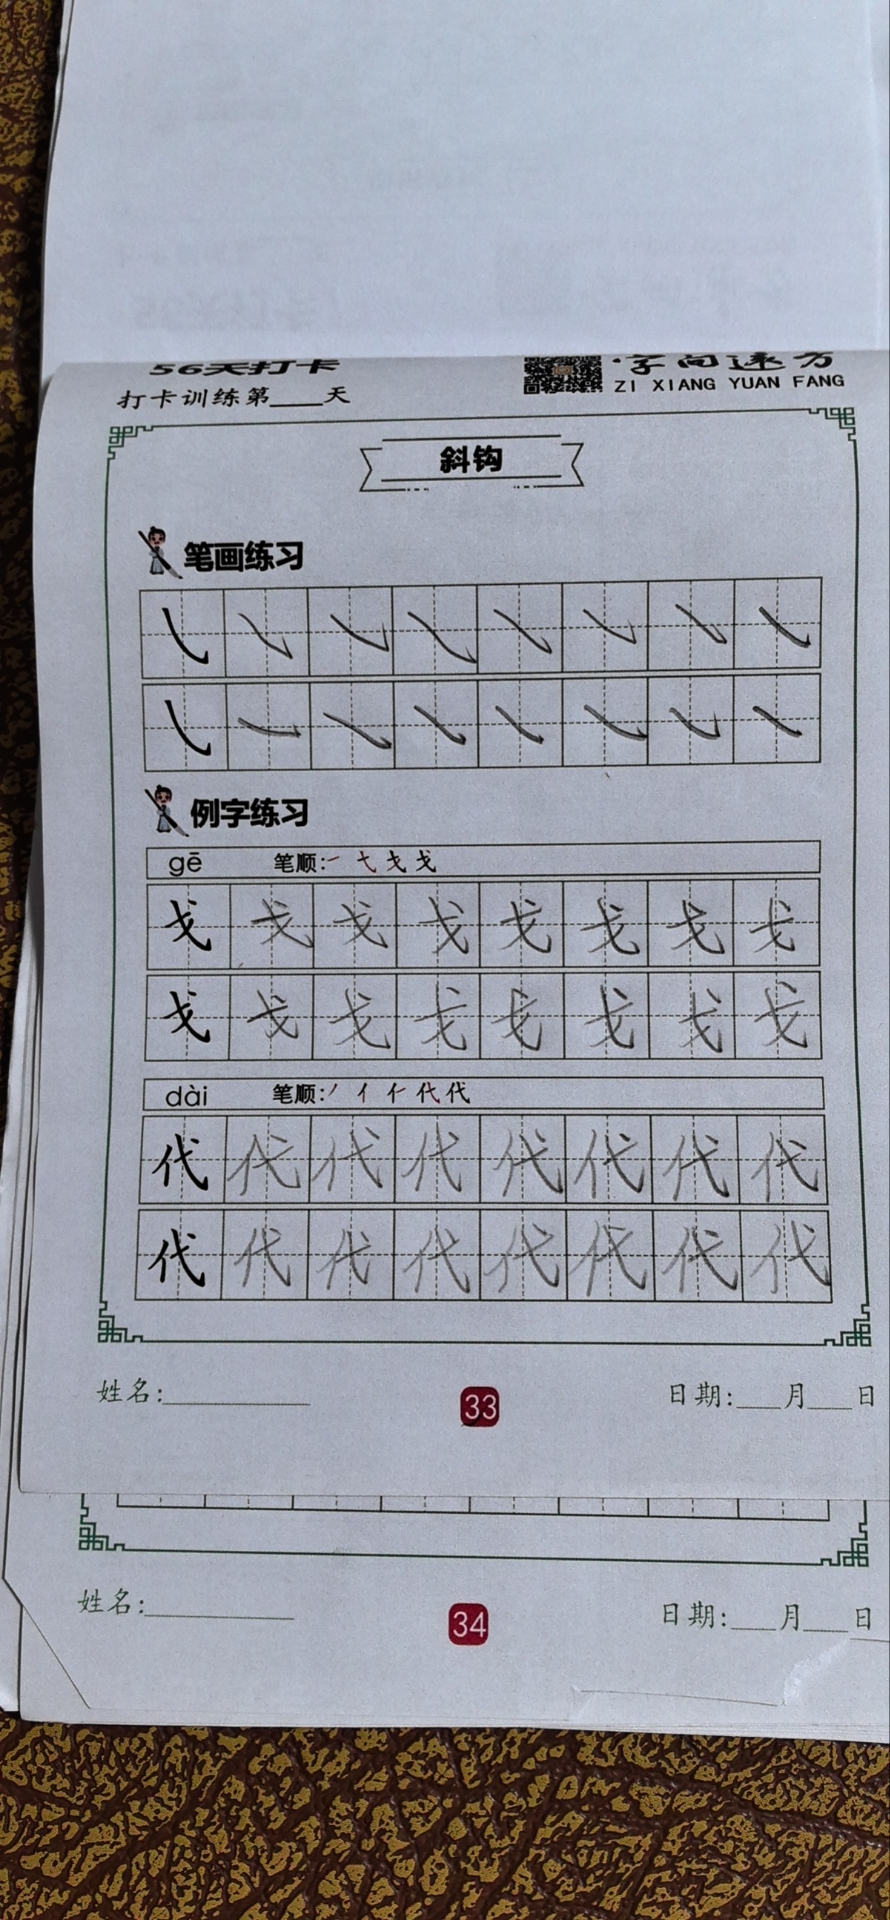 56天打卡
字向远方
打卡训练第___天
ZI XIANG YUAN FANG
斜钩
笔画练习
例字练习
gē 笔顺:
戈 戈 戈 戈 戈 戈 戈 戈
戈 戈 戈 戈 戈 戈 戈 戈
dài 笔顺:丿 亻 仁 代 代
代 代 代 代 代 代 代 代
代 代 代 代 代 代 代 代
姓名:___ 33 日期:___月___日
姓名:___ 34 日期:___月___日